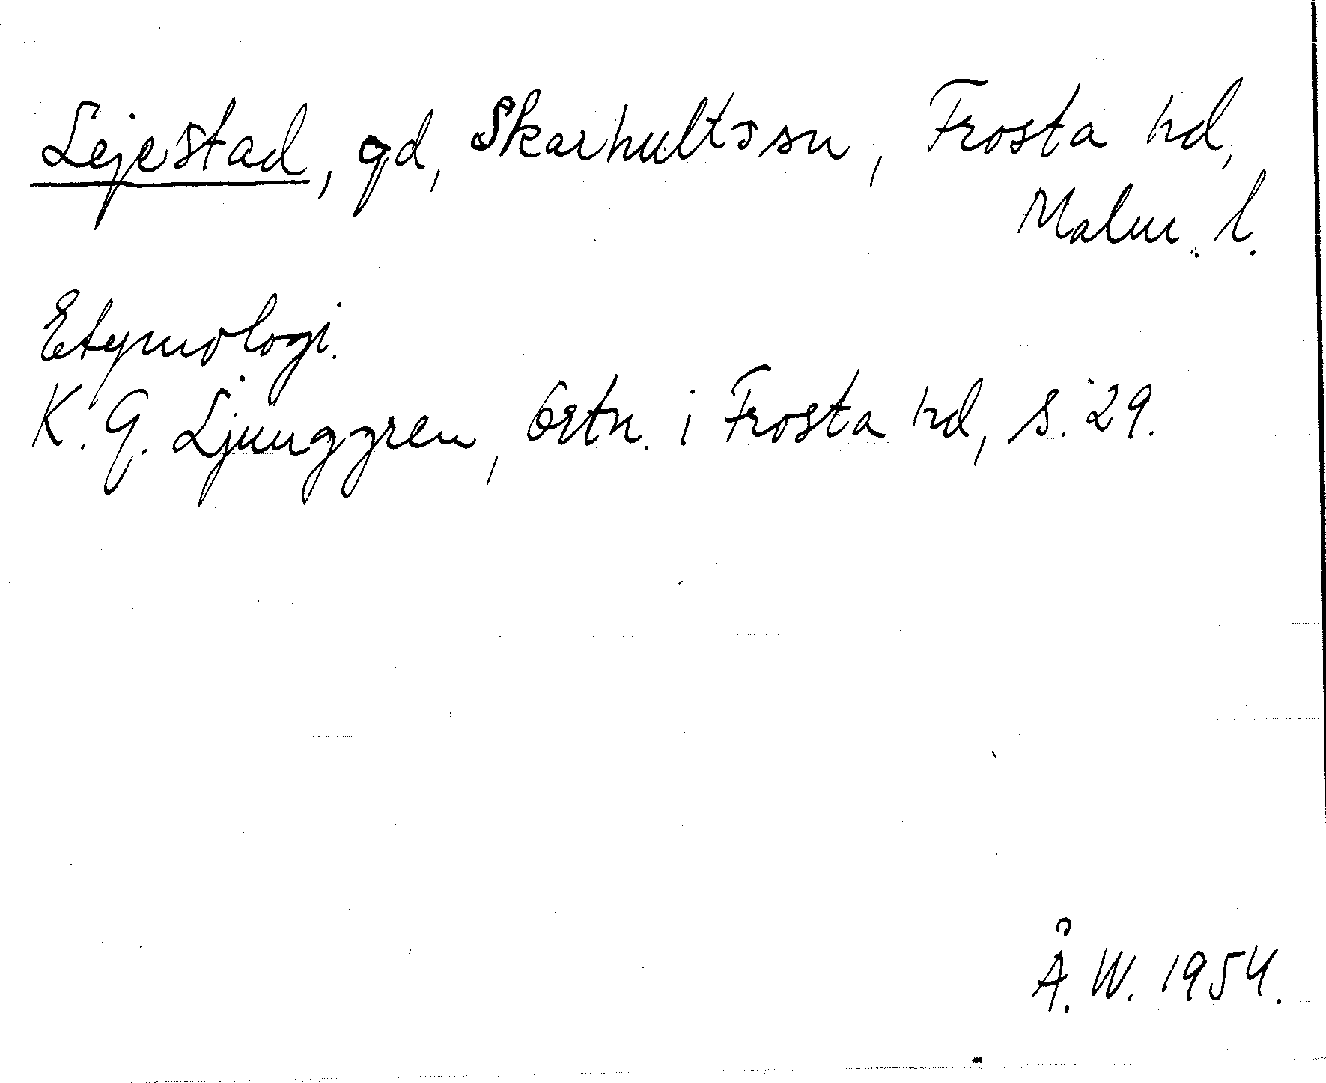 Lejestad, gd, Skarhults sn, Frosta hd,
Malm. l.
Etymologi.
K. G. Ljunggren, Ortn. i Frosta hd, s. 29.
Å. W. 1954.